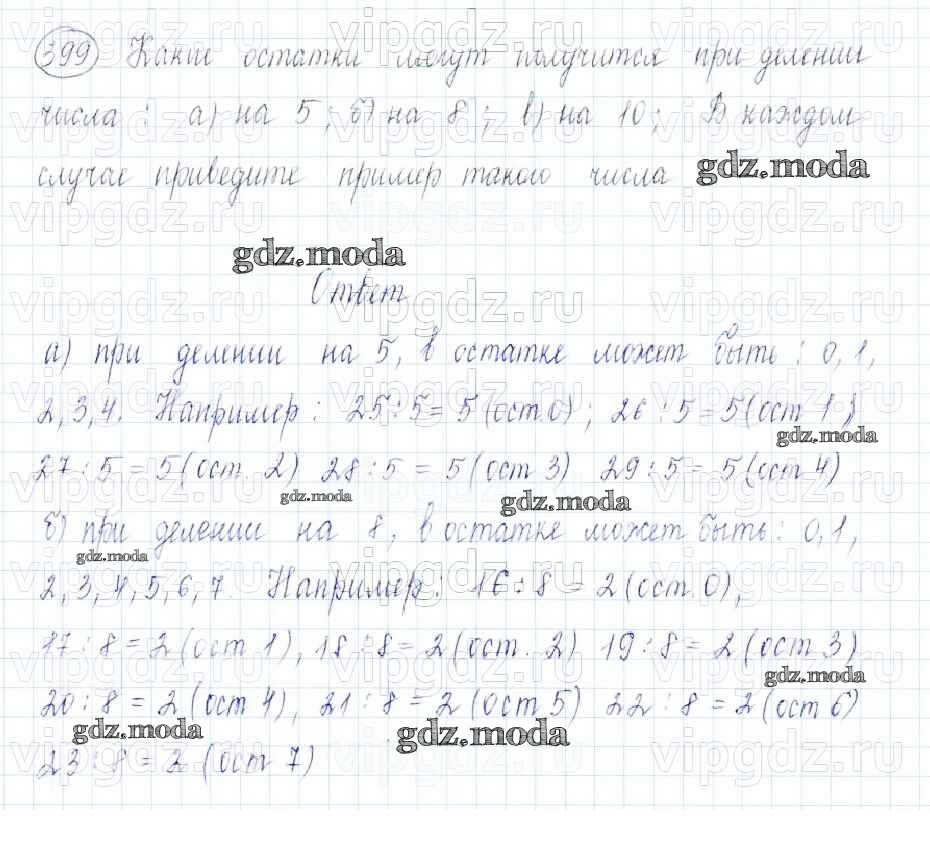 399 Какие остатки могут получится при делении
числа : а) на 5 ; б) на 8 ; в) на 10 ; В каждом
случае приведите пример такого числа gdz.moda
gdz.moda
Ответ
а) при делении на 5, в остатке может быть : 0, 1,
2, 3, 4. Например : 25 : 5 = 5 (ост. 0) ; 26 : 5 = 5 (ост 1)
gdz.moda
27 : 5 = 5 (ост. 2) 28 : 5 = 5 (ост 3) 29 : 5 = 5 (ост 4)
gdz.moda gdz.moda
б) при делении на 8, в остатке может быть : 0, 1,
gdz.moda
2, 3, 4, 5, 6, 7. Например : 16 : 8 = 2 (ост. 0),
17 : 8 = 2 (ост 1), 18 : 8 = 2 (ост. 2) 19 : 8 = 2 (ост 3)
gdz.moda
20 : 8 = 2 (ост 4), 21 : 8 = 2 (ост 5) 22 : 8 = 2 (ост 6)
gdz.moda gdz.moda
23 : 8 = 2 (ост 7)
vipgdz.ru